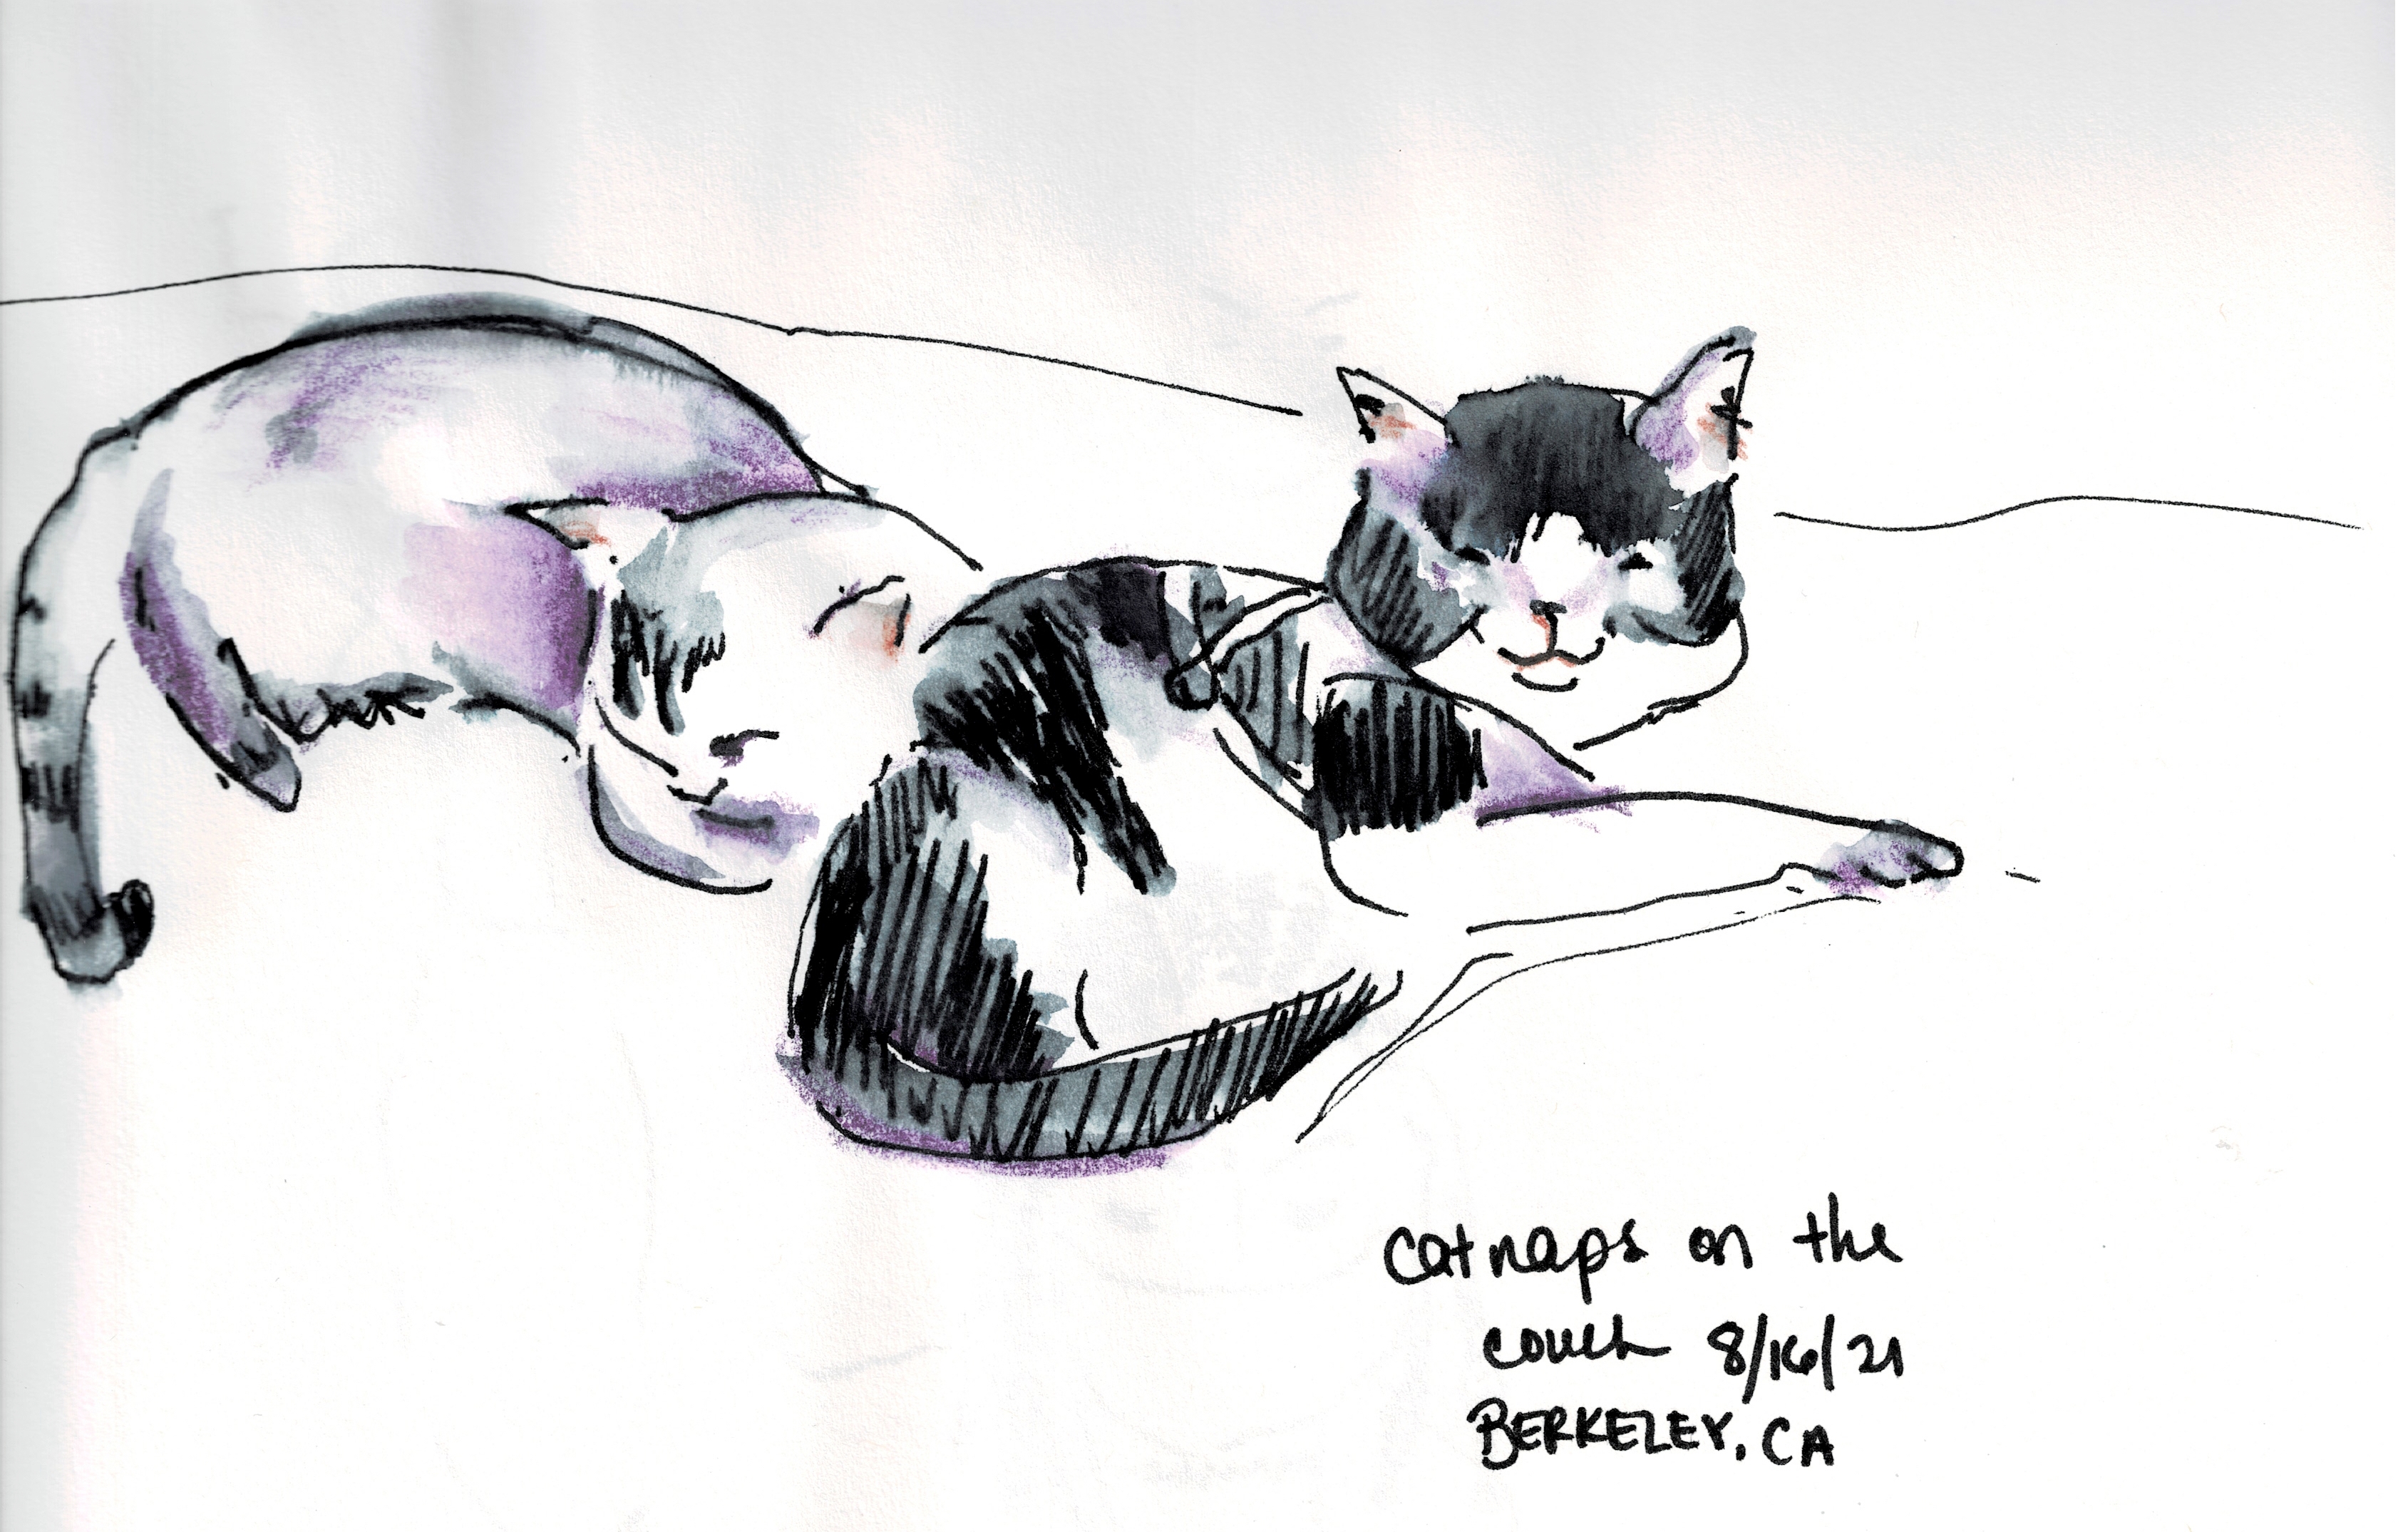 catnaps on the
couch 8/16/21
BERKELEY, CA